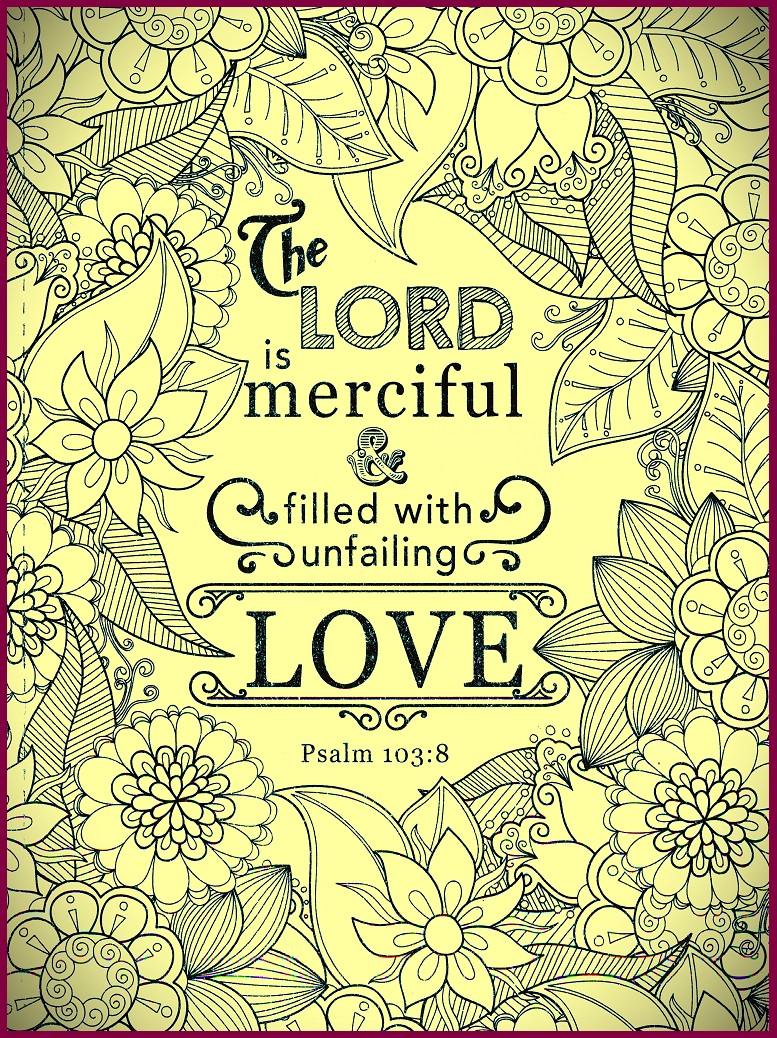 The
LORD
is
merciful
&
filled with
unfailing
LOVE
Psalm 103:8